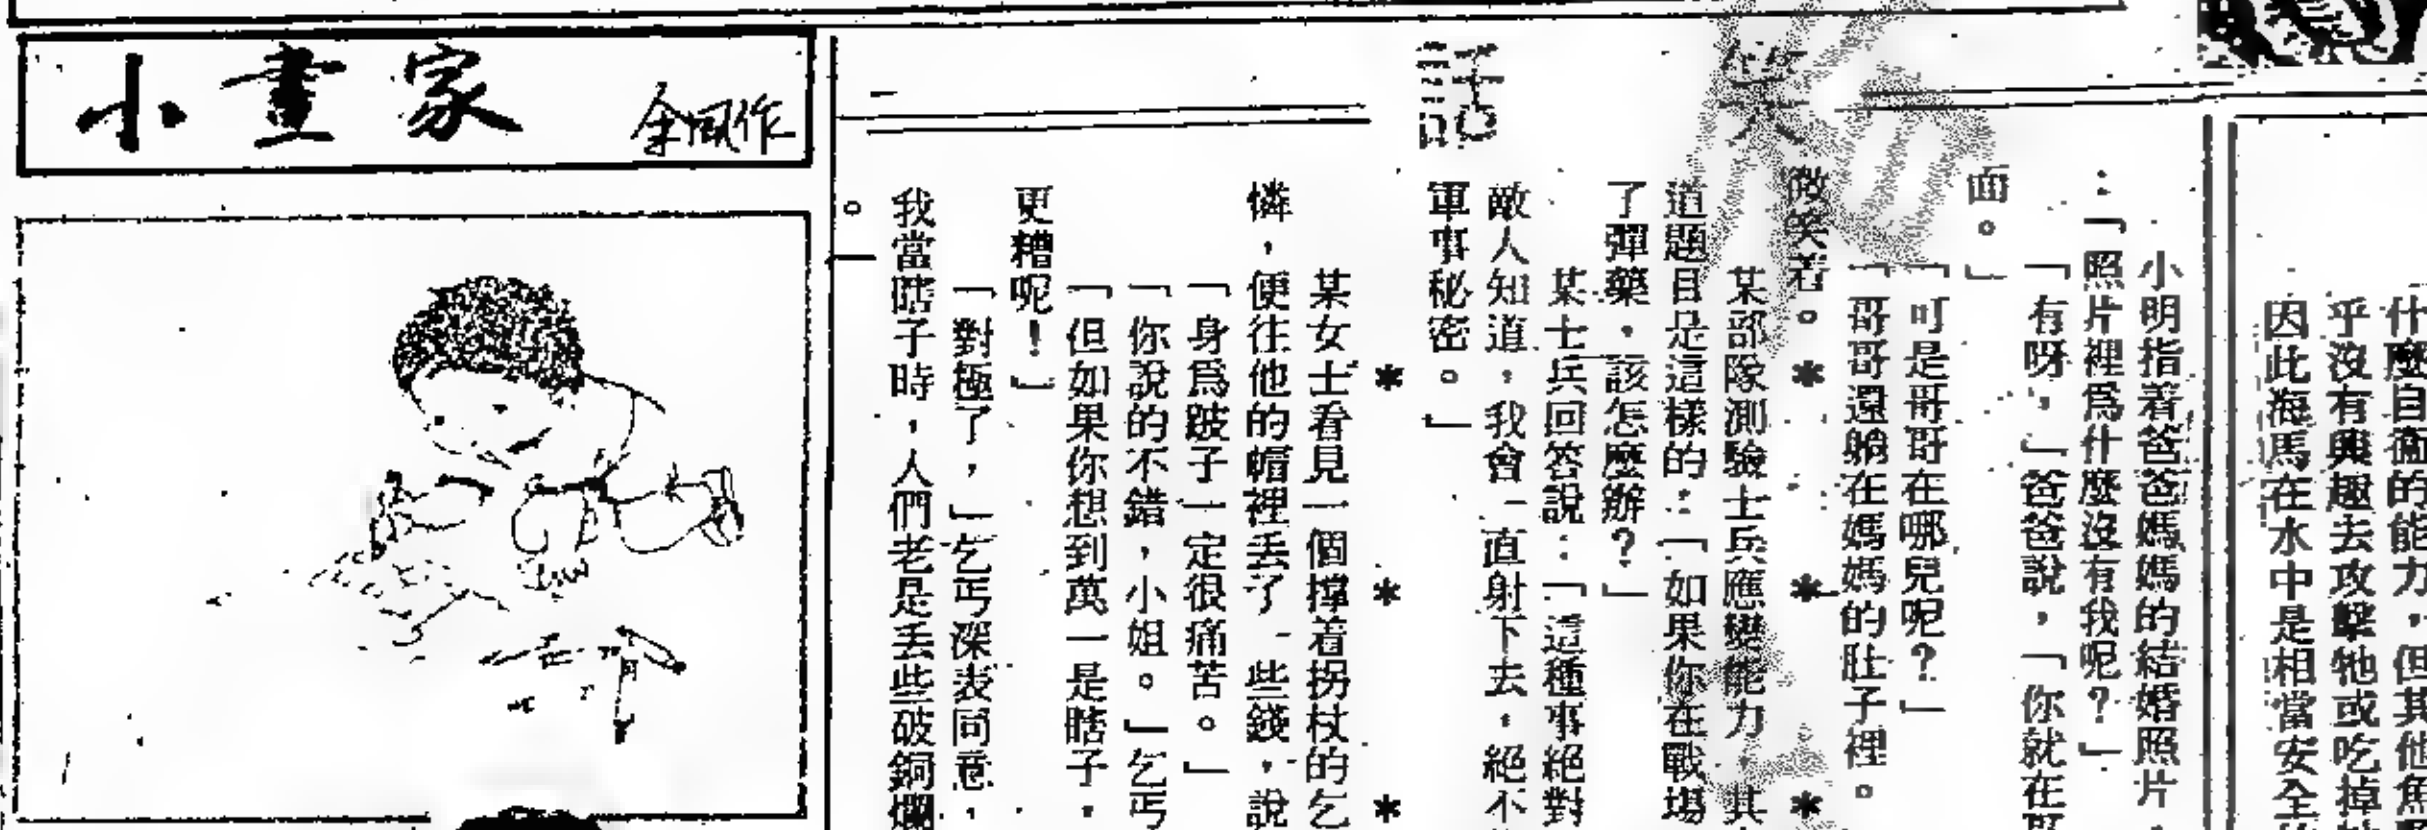 什麼自衞的能力，但其他魚
乎沒有興趣去攻擊牠或吃掉
因此海馬在水中是相當安全
笑話
小明指着爸爸媽媽的結婚照片，
：「照片裡爲什麼沒有我呢？」
「有呀，」爸爸說，「你就在哥
面。」
「可是哥哥在哪兒呢？」
「哥哥還躺在媽媽的肚子裡。
微笑着。
＊　＊　＊
某部隊測驗士兵應變能力，其
道題目是這樣的：「如果你在戰場
了彈藥，該怎麼辦？」
某士兵回答說：「這種事絕對
敵人知道，我會一直射下去，絕不
軍事秘密。」
＊　＊　＊
某女士看見一個撑着拐杖的乞
憐，便往他的帽裡丢了一些錢，說
「身爲跛子一定很痛苦。」
「你說的不錯，小姐。」乞丐
「但如果你想到萬一是瞎子，
更糟呢！」
「對極了，」乞丐深表同意，
我當瞎子時，人們老是丢些破銅爛
。」
小畫家
余風作